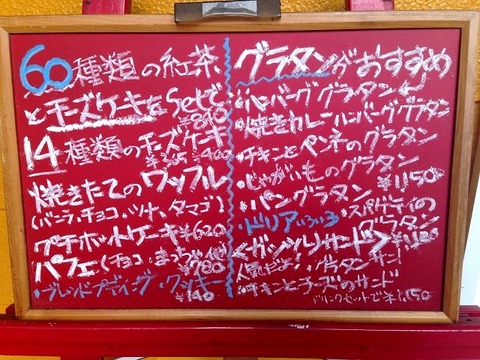 60種類の紅茶
とチーズケーキをSetで
¥810
14種類のチーズケーキ
¥365 ¥400
焼きたてのワッフル
(バニラ、チョコ、ツナ、タマゴ)
プチホットケーキ¥620
パフェ(チョコ、まっちゃ、他)
¥780
・ブレンドプディング・クッキー
¥140
グラタンがおすすめ
・ハンバーググラタン
・焼きカレーハンバーググラタン
・チキンとペンネのグラタン
・じゃがいものグラタン
¥1,150
・パングラタン
・ドリアいろいろ
・スパゲティのグラタン
<ガッツリサンド>
人気だよ!グラタンサンド
・チキンとチーズのサンド
ドリンクセットで ¥1,150